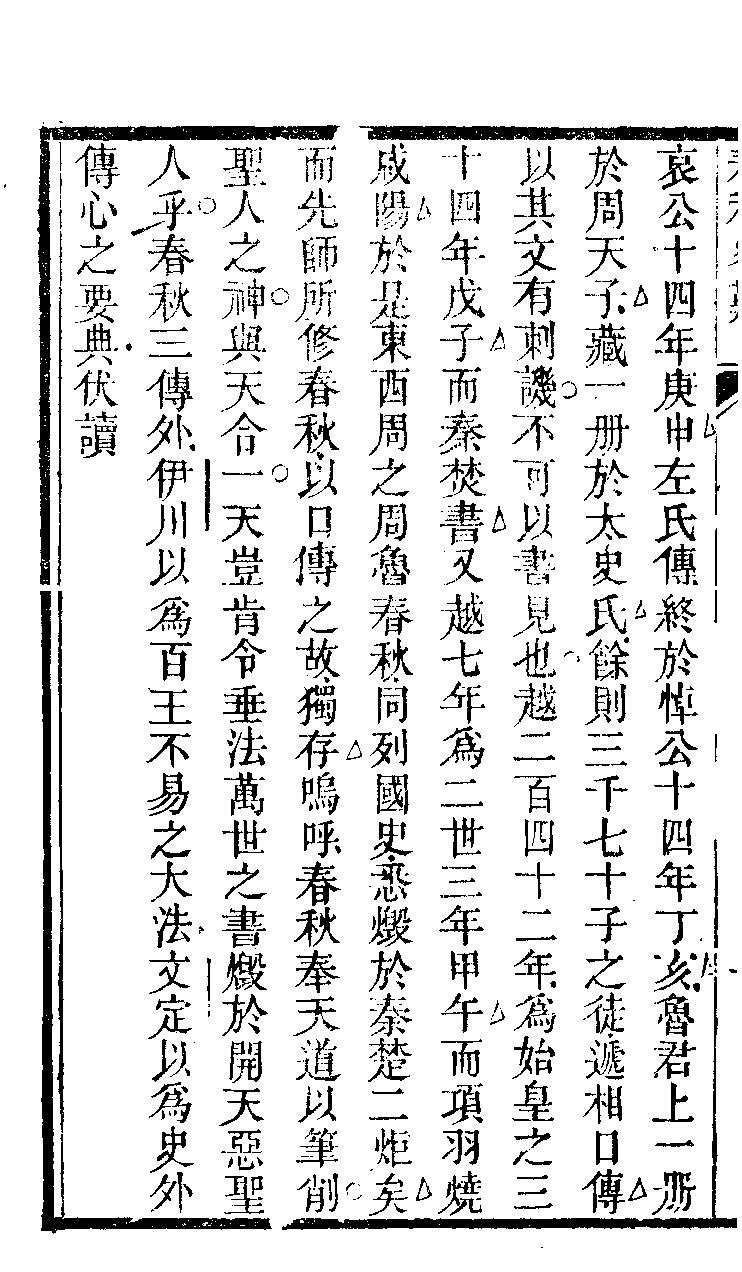 哀公十四年庚申左氏傳終於悼公十四年丁亥魯君上一册
於周天子藏一册於太史氏餘則三千七十子之徒遞相口傳
以其文有刺譏不可以書見也越二百四十二年爲始皇之三
十四年戊子而秦焚書又越七年爲二世三年甲午而項羽燒
咸陽於是東西周之周魯春秋同列國史悉燬於秦楚二炬矣
而先師所修春秋以口傳之故獨存嗚呼春秋奉天道以筆削
聖人之神與天合一天豈肯令垂法萬世之書燬於開天惡聖
人乎春秋三傳外伊川以爲百王不易之大法文定以爲史外
傳心之要典伏讀